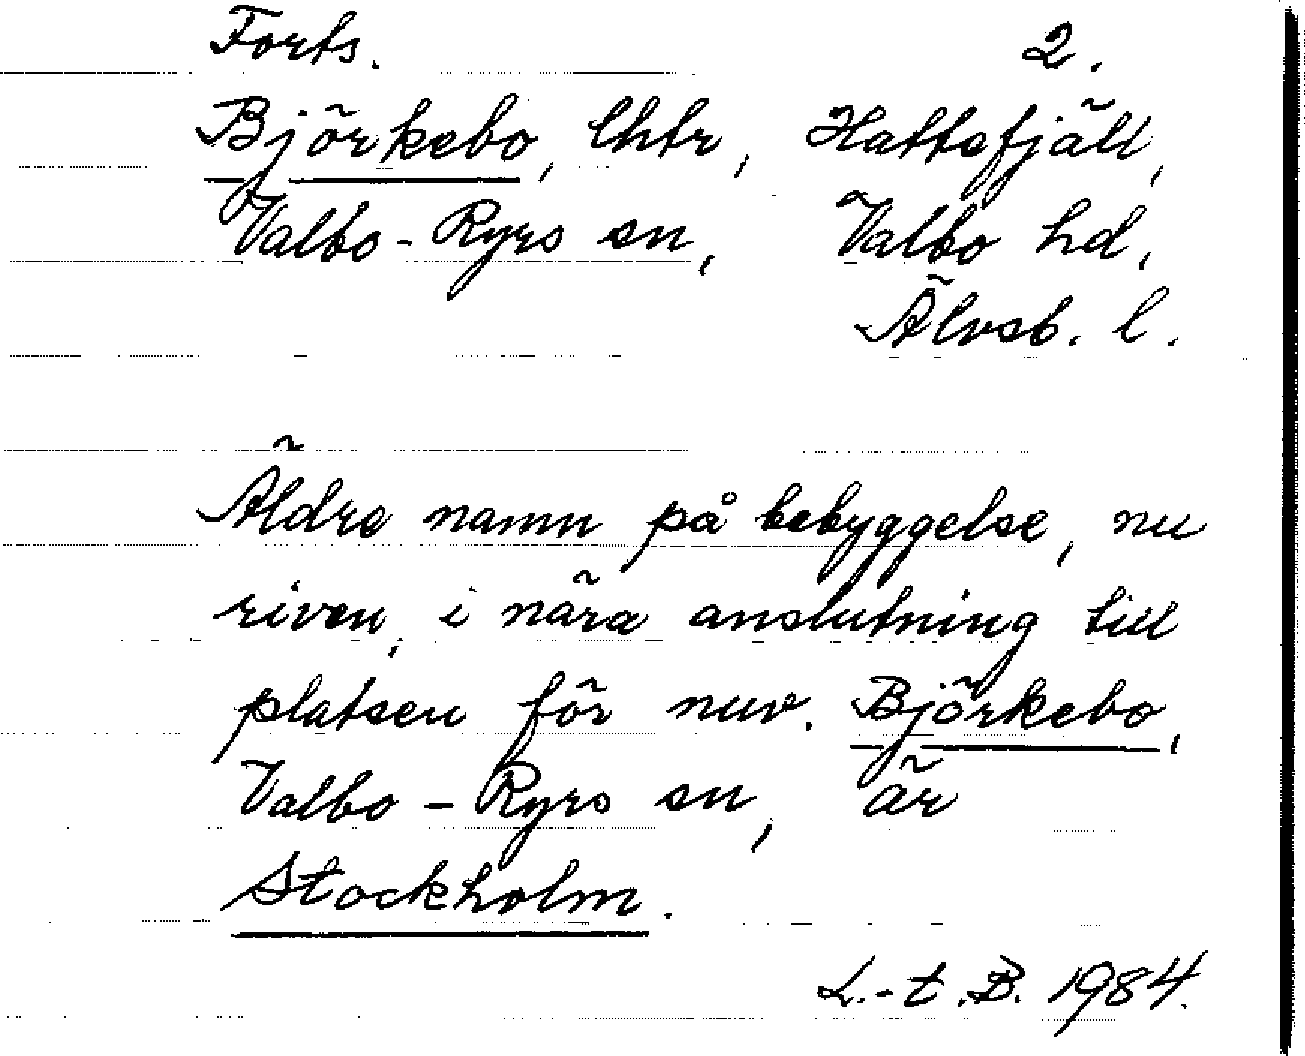 Forts. 2.
Björkebo, lhtr, Hattefjäll,
Valbo-Ryrs sn, Valbo hd,
Älvsb. l.
Äldre namn på bebyggelse, nu
riven, i nära anslutning till
platsen för nuv. Björkebo,
Valbo-Ryrs sn, är
Stockholm.
L.-t.B. 1984.